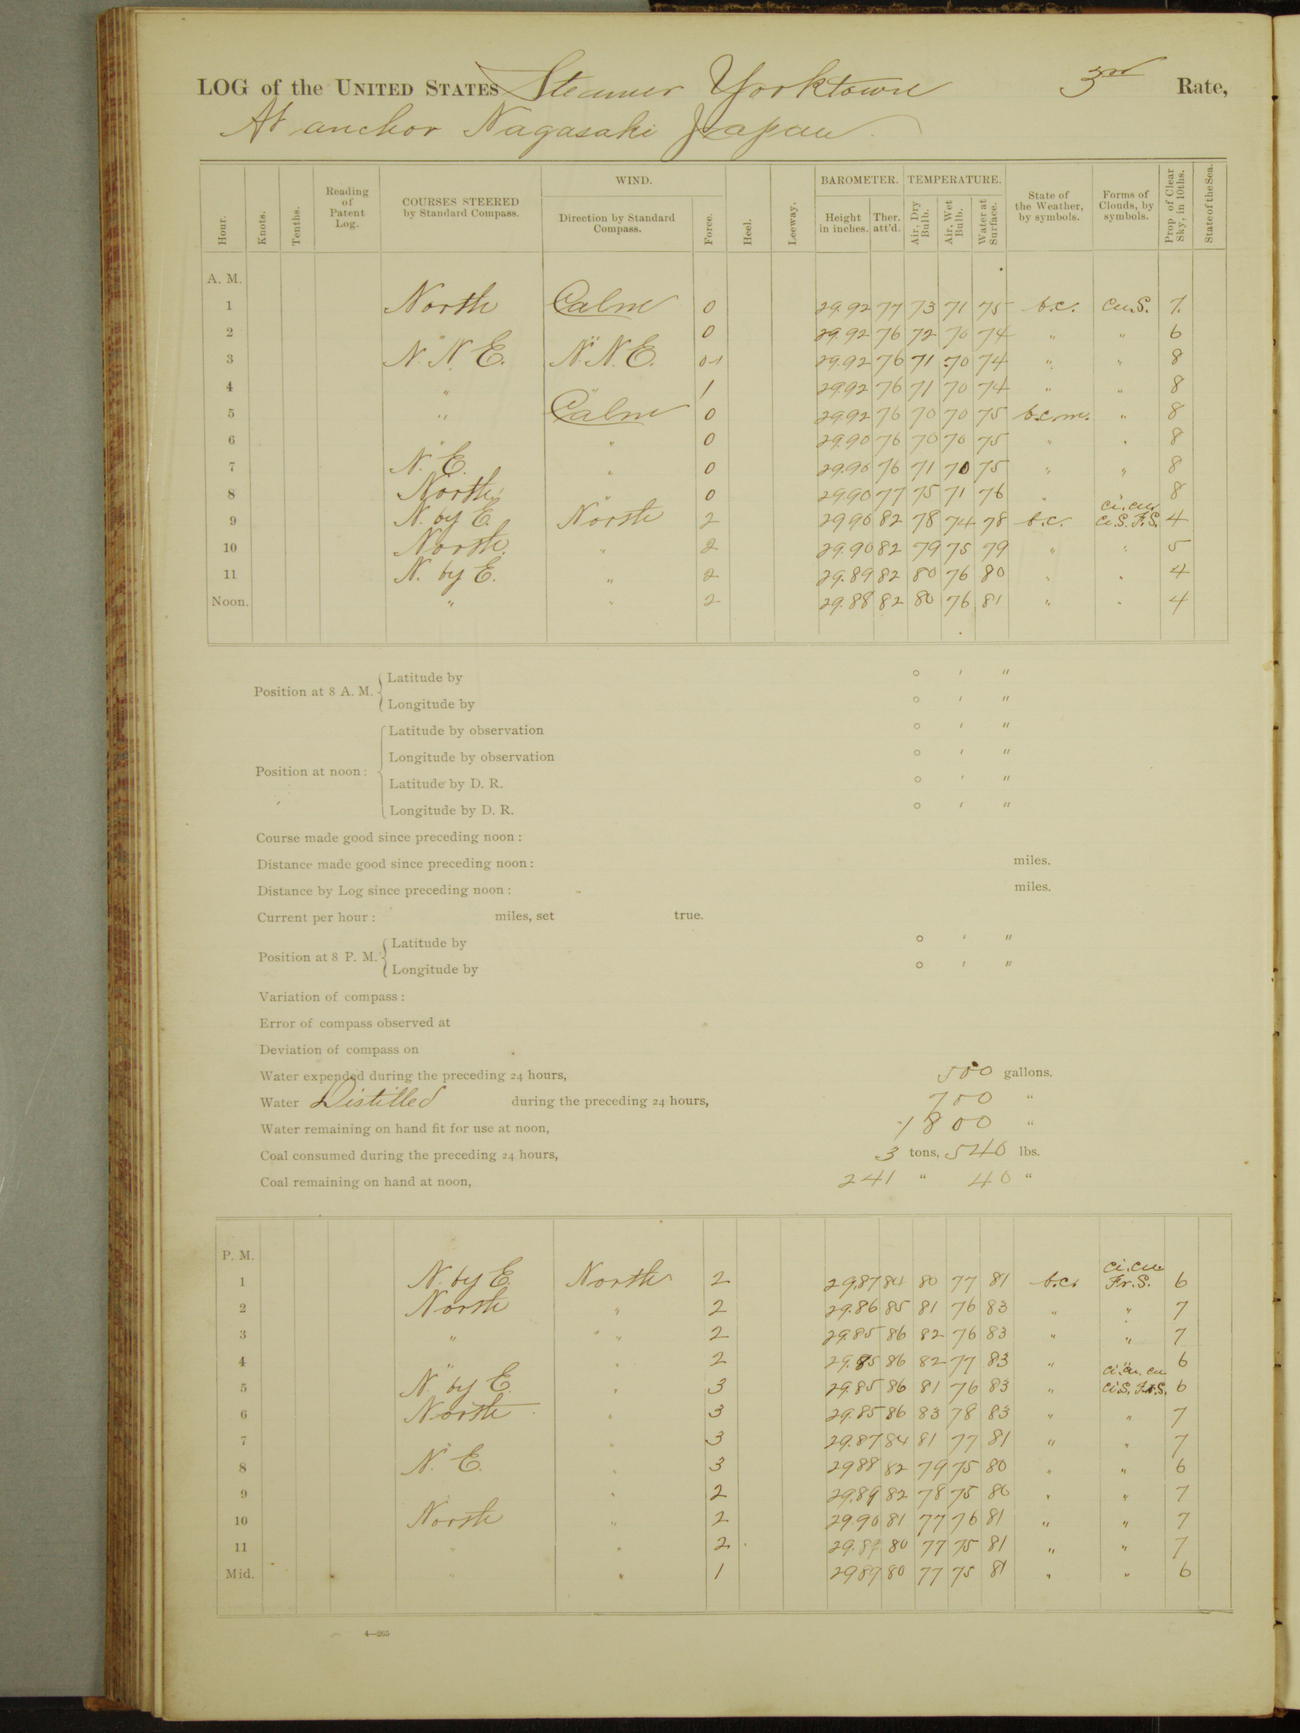 LOG of the UNITED STATES Steamer Yorktown 3rd Rate,
At anchor Nagasaki Japan.
Hour. Knots. Tenths. Reading of Patent Log. COURSES STEERED by Standard Compass. WIND. Direction by Standard Compass. Force. Heel. Leeway. BAROMETER. Height in inches. Ther. att'd. TEMPERATURE. Air, Dry Bulb. Air, Wet Bulb. Water at Surface. State of the Weather, by symbols. Forms of Clouds, by symbols. Prop. of Clear Sky, in 10ths. State of the Sea.
A. M.
1 North Calm 0 29.92 77 73 71 75 b.c. cu.S. 7.
2 " " 0 29.92 76 72 70 74 " " 6
3 N.N.E. N.N.E. 0-1 29.92 76 71 70 74 " " 8
4 " " 1 29.92 76 71 70 74 " " 8
5 " Calm 0 29.92 76 70 70 75 b.c.m. " 8
6 " " 0 29.90 76 70 70 75 " " 8
7 N.E. " 0 29.90 76 71 70 75 " " 8
8 North " 0 29.90 77 75 71 76 " 8
ci.cu.
9 N. by E. North 2 29.90 82 78 74 78 b.c. ci.S. Fr.S. 4
10 North " 2 29.90 82 79 75 79 " " 5
11 N. by E. " 2 29.89 82 80 76 80 " " 4
Noon. " " 2 29.88 82 80 76 81 " " 4
Position at 8 A. M. { Latitude by ° ′ ″
Longitude by ° ′ ″
Latitude by observation ° ′ ″
Longitude by observation ° ′ ″
Position at noon: { Latitude by D. R. ° ′ ″
Longitude by D. R. ° ′ ″
Course made good since preceding noon:
Distance made good since preceding noon: miles.
Distance by Log since preceding noon: miles.
Current per hour: miles, set true.
Position at 8 P. M. { Latitude by ° ′ ″
Longitude by ° ′ ″
Variation of compass:
Error of compass observed at
Deviation of compass on
Water expended during the preceding 24 hours, 500 gallons.
Water Distilled during the preceding 24 hours, 700 "
Water remaining on hand fit for use at noon, 1800 "
Coal consumed during the preceding 24 hours, 3 tons, 540 lbs.
Coal remaining on hand at noon, 241 " 40 "
P. M.
ci.cu.
1 N. by E. North 2 29.87 84 80 77 81 b.c. Fr.S. 6
2 North " 2 29.86 85 81 76 83 " " 7
3 " " 2 29.85 86 82 76 83 " " 7
4 " " 2 29.85 86 82 77 83 " " 6
ci. cu.
5 N. by E. " 3 29.85 86 81 76 83 " ci.S. Fr.S. 6
6 North " 3 29.85 86 83 78 83 " " 7
7 " " 3 29.87 84 81 77 81 " " 7
8 N.E. " 3 29.88 82 79 75 80 " " 6
9 " " 2 29.89 82 78 75 80 " " 7
10 North " 2 29.90 81 77 76 81 " " 7
11 " " 2 80 77 75 81 " " 7
Mid. " " 1 29.87 80 77 75 81 " " 6
4—265